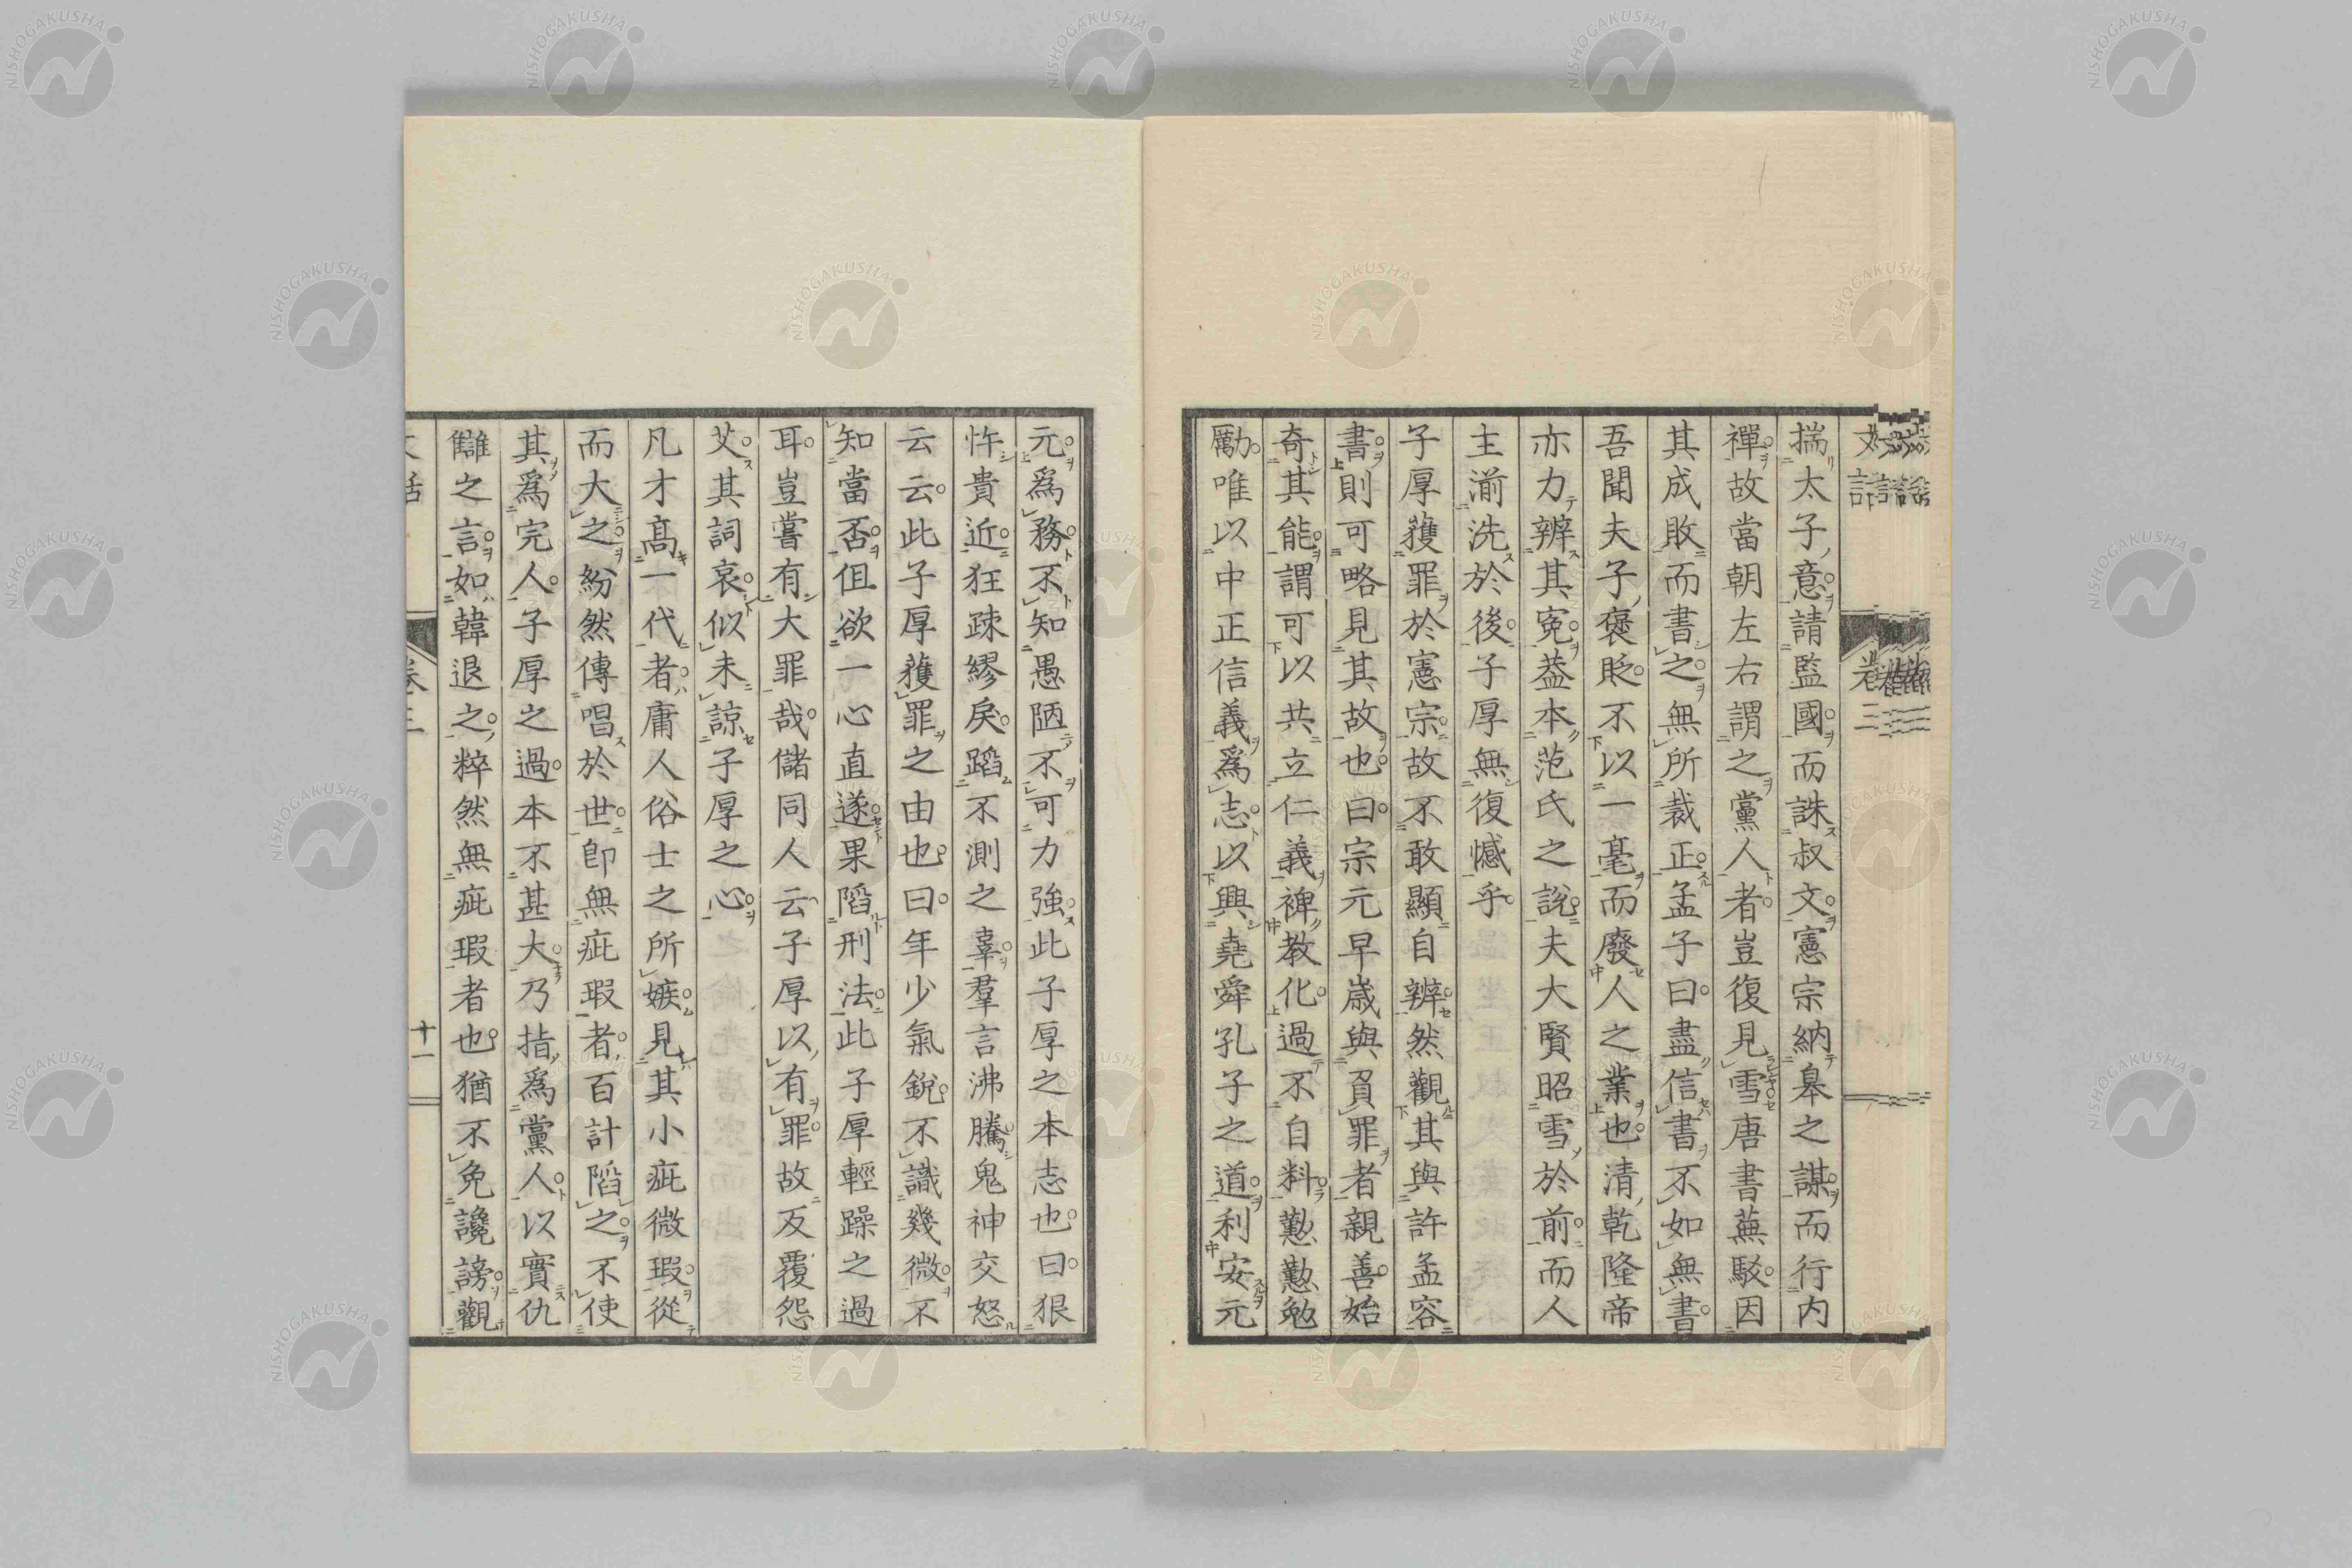 揣太子意請監國而誅叔文憲宗納皋之謀而行内
禪故當朝左右謂之黨人者豈復見雪唐書蕪駁因
其成敗而書之無所裁正孟子曰盡信書不如無書
吾聞夫子褒貶不以一毫而廢人之業也清乾隆帝
亦力辨其寃葢本范氏之說夫大賢昭雪於前而人
主湔洗於後子厚無復憾乎
子厚獲罪於憲宗故不敢顯自辨然觀其與許孟容
書則可略見其故也曰宗元早歲與負罪者親善始
奇其能謂可以共立仁義裨教化過不自料懃懃勉
勵唯以中正信義爲志以興堯舜孔子之道利安元
元爲務不知愚陋不可力強此子厚之本志也曰狠
忤貴近狂疎繆戾蹈不測之辜羣言沸騰鬼神交怒
云云此子厚獲罪之由也曰年少氣銳不識幾微不
知當否但欲一心直遂果陷刑法此子厚輕躁之過
耳豈嘗有大罪哉儲同人云子厚以有罪故反覆怨
艾其詞哀似未諒子厚之心
凡才高一代者庸人俗士之所嫉見其小疵微瑕從
而大之紛然傳唱於世卽無疵瑕者百計陷之不使
其爲完人子厚之過本不甚大乃指爲黨人以實仇
讎之言如韓退之粹然無疵瑕者也猶不免讒謗觀
卷三
十一
NISHOGAKUSHA